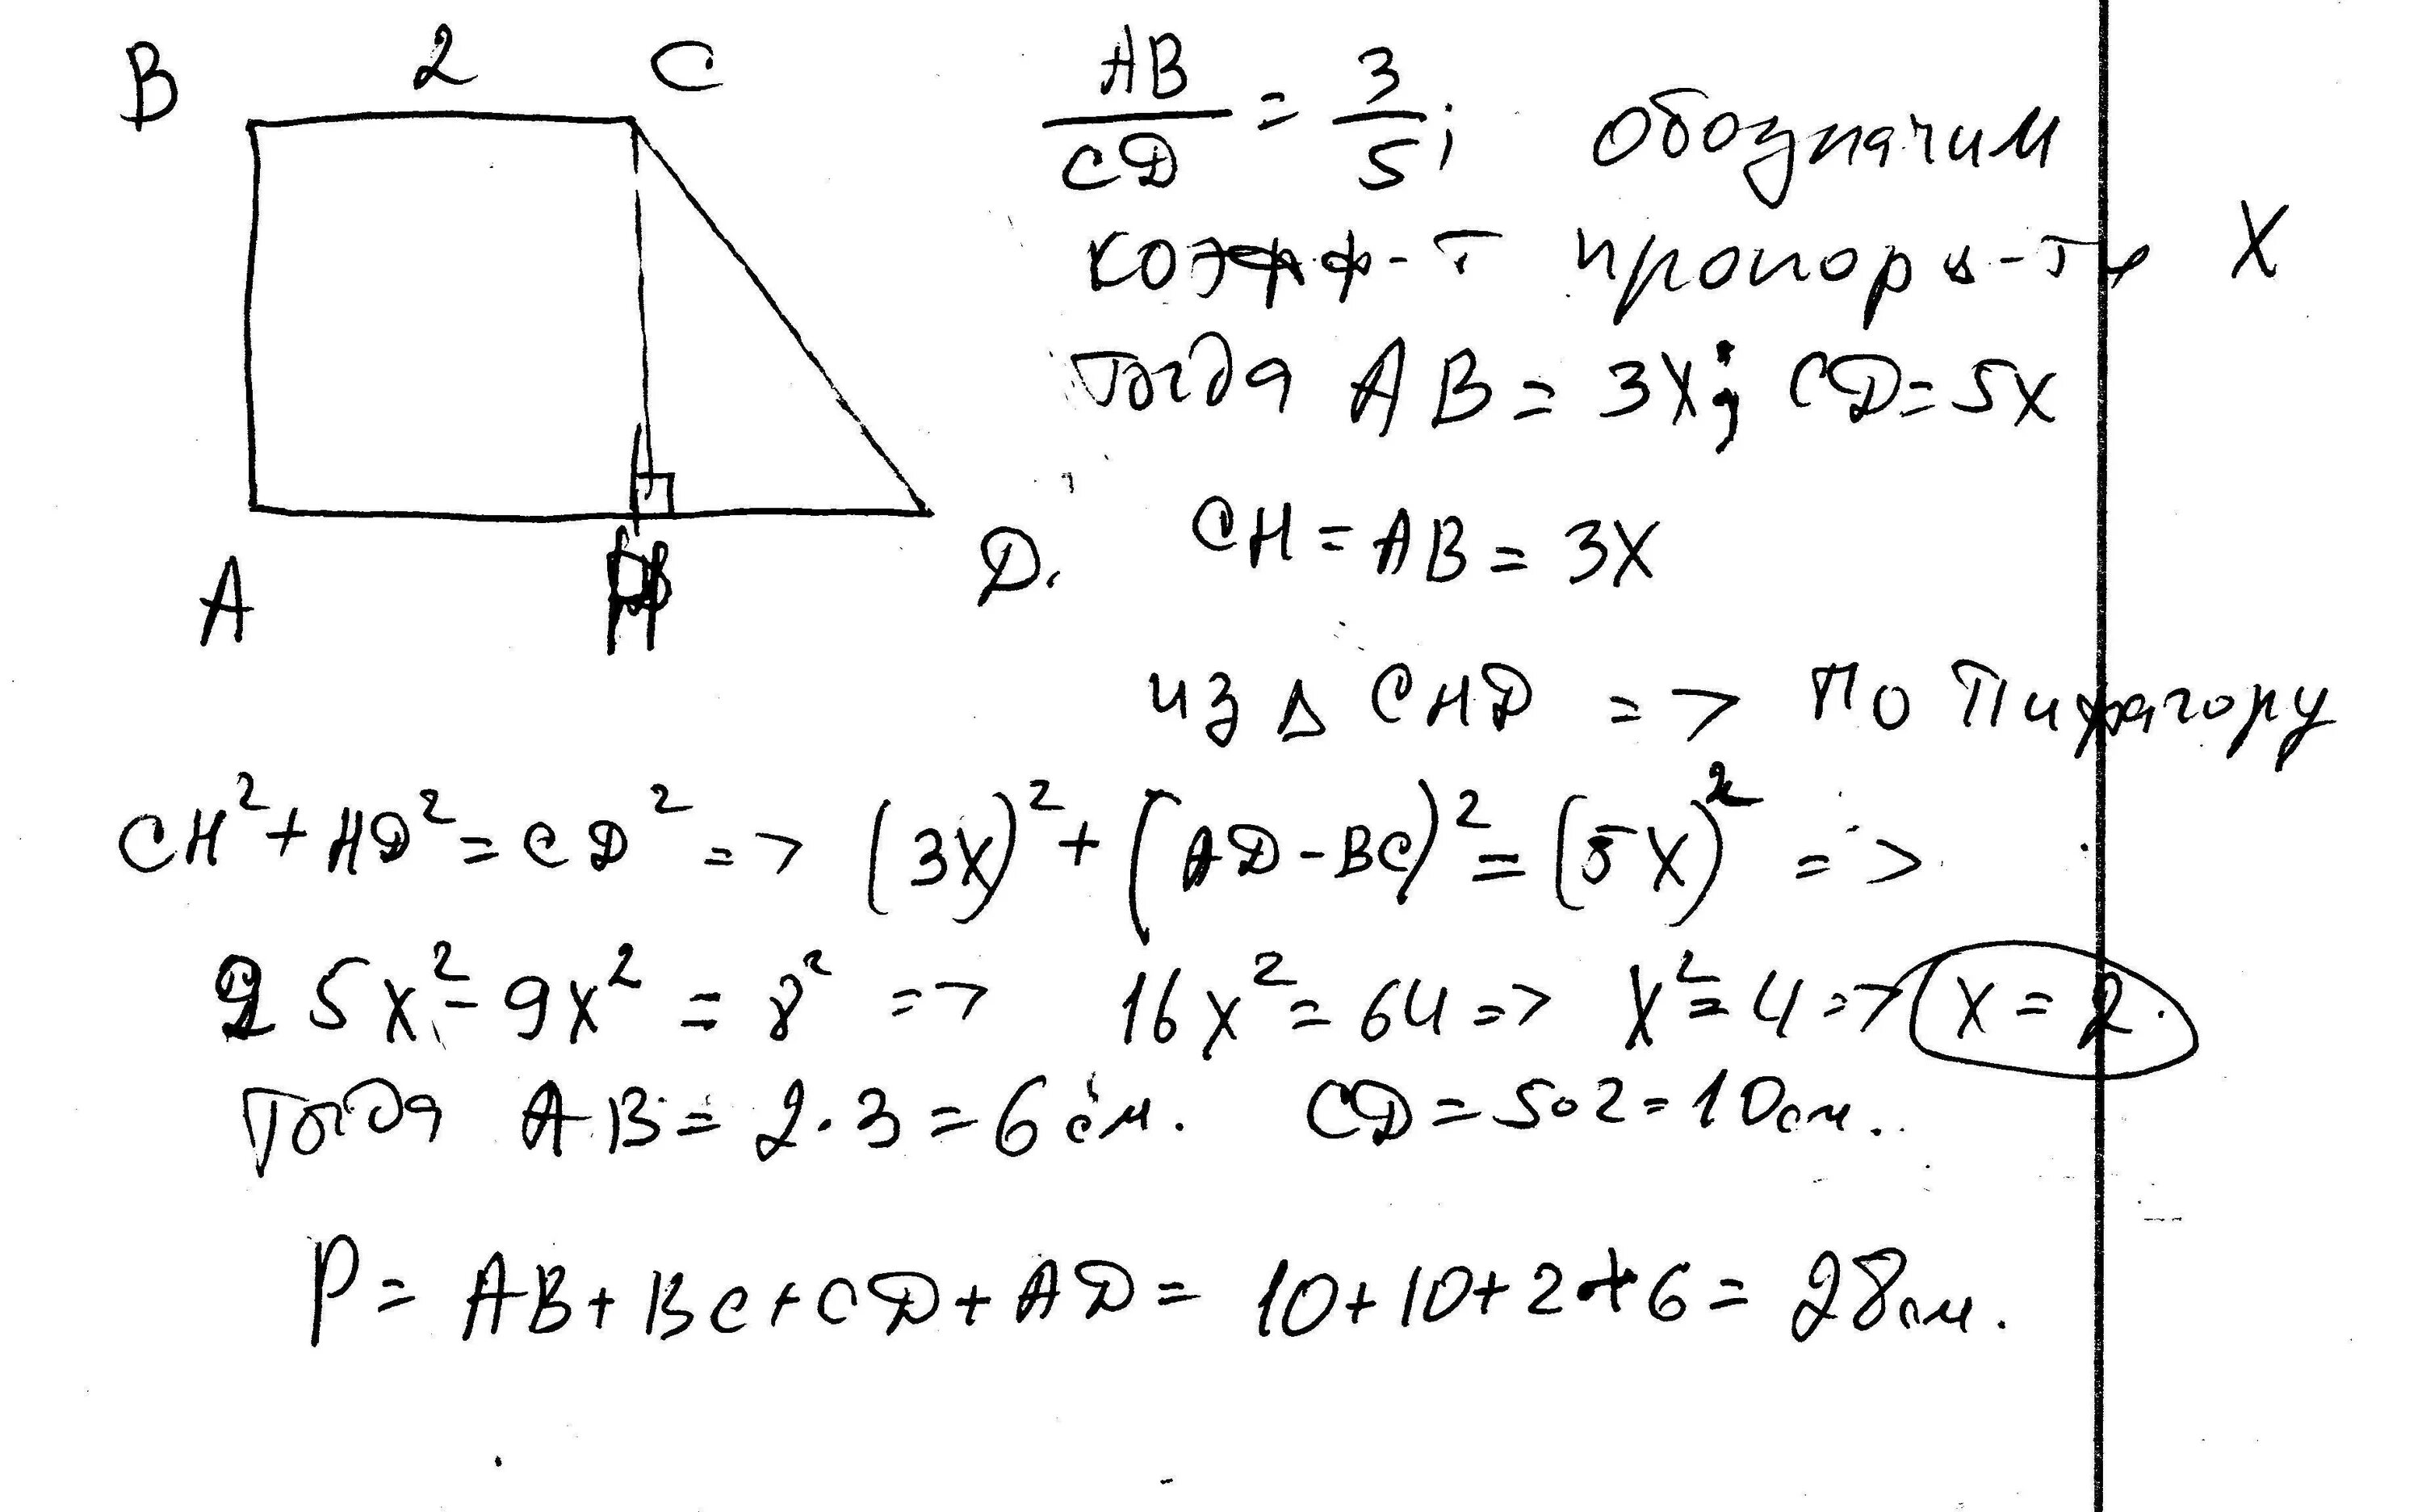 B 2 C
A H D.
AB/CD = 3/5; обозначим
коэфф-т пропорц-ти X
тогда AB = 3X; CD = 5X
CH = AB = 3X
из Δ CHD => по Пифагору
CH² + HD² = CD² => (3X)² + (AD - BC)² = (5X)² =>
25X² - 9X² = 8² => 16X² = 64 => X² = 4 => X = 2.
Тогда AB = 2·3 = 6 см. CD = 5∘2 = 10 см.
P = AB + BC + CD + AD = 10 + 10 + 2 + 6 = 28 см.